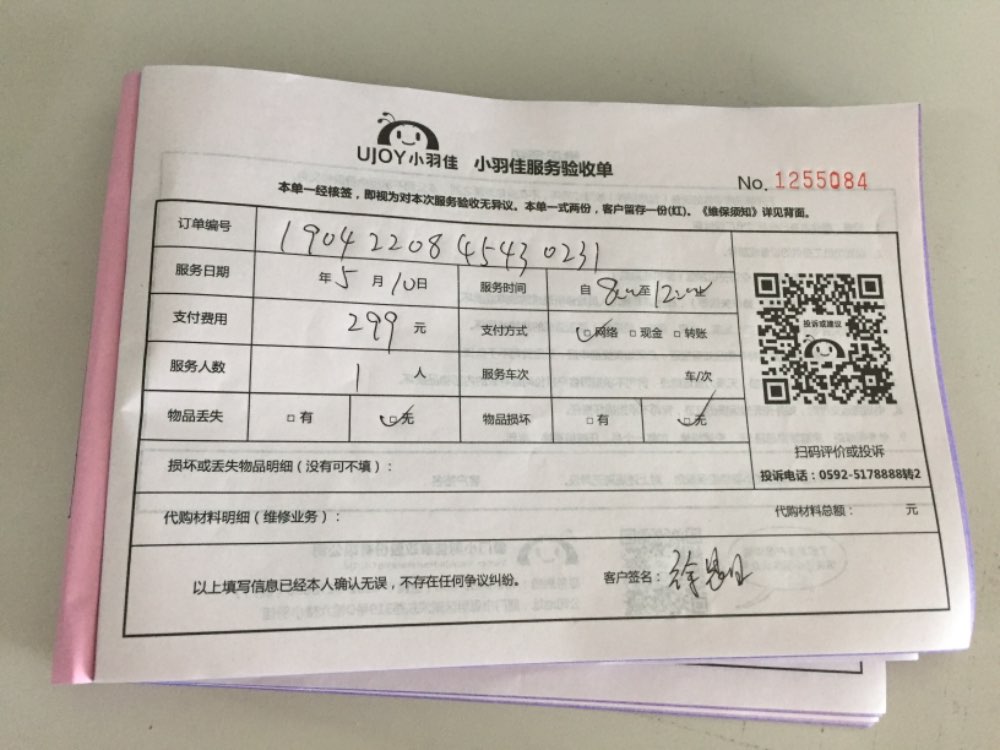 UJOY小羽佳 小羽佳服务验收单
No. 1255084
本单一经核签，即视为对本次服务验收无异议。本单一式两份，客户留存一份(红)。《维保须知》详见背面。
订单编号 1904220845430231
服务日期 年5月10日 服务时间 自8:00至12:00止
支付费用 299元 支付方式 网络 现金 转账
投诉或建议
服务人数 1人 服务车次 车/次
物品丢失 有 无 物品损坏 有 无
扫码评价或投诉
损坏或丢失物品明细（没有可不填）：
投诉电话：0592-5178888转2
代购材料明细（维修业务）： 代购材料总额： 元
以上填写信息已经本人确认无误，不存在任何争议纠纷。 客户签名：徐